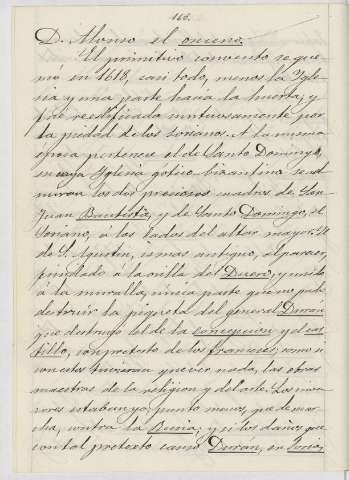 160.
D. Alonso el onceno.
El primitivo convento se que-
mó en 1618, casi todo, menos la Ygle-
sia y una parte hacia la huerta, y
fué reedificado suntuosamente por
la piedad de los sorianos. A la misma
época pertenece el de Santo Domingo,
en cuya Yglesia gótico bizantina se ad-
miran los dos preciosos cuadros de San
Juan Bautista, y de Santo Domingo, el
Soriano, á los lados del altar mayor. El
de S. Agustin, es mas antiguo, al parecer,
fundado á la orilla del Duero, y unido
á la muralla, única parte que no pudo
destruir la piqueta del general Durán
que destruyó la de la Concepcion y el cas
tillo, con pretexto de los franceses; como si
con estos tuvieran que ver nada, las obras
maestras de la religion y del arte. Los inva-
sores estaban ya, punto menos, que de mar-
cha, contra la Rusia; y si los daños que
con tal pretexto causó Durán, en Soria,